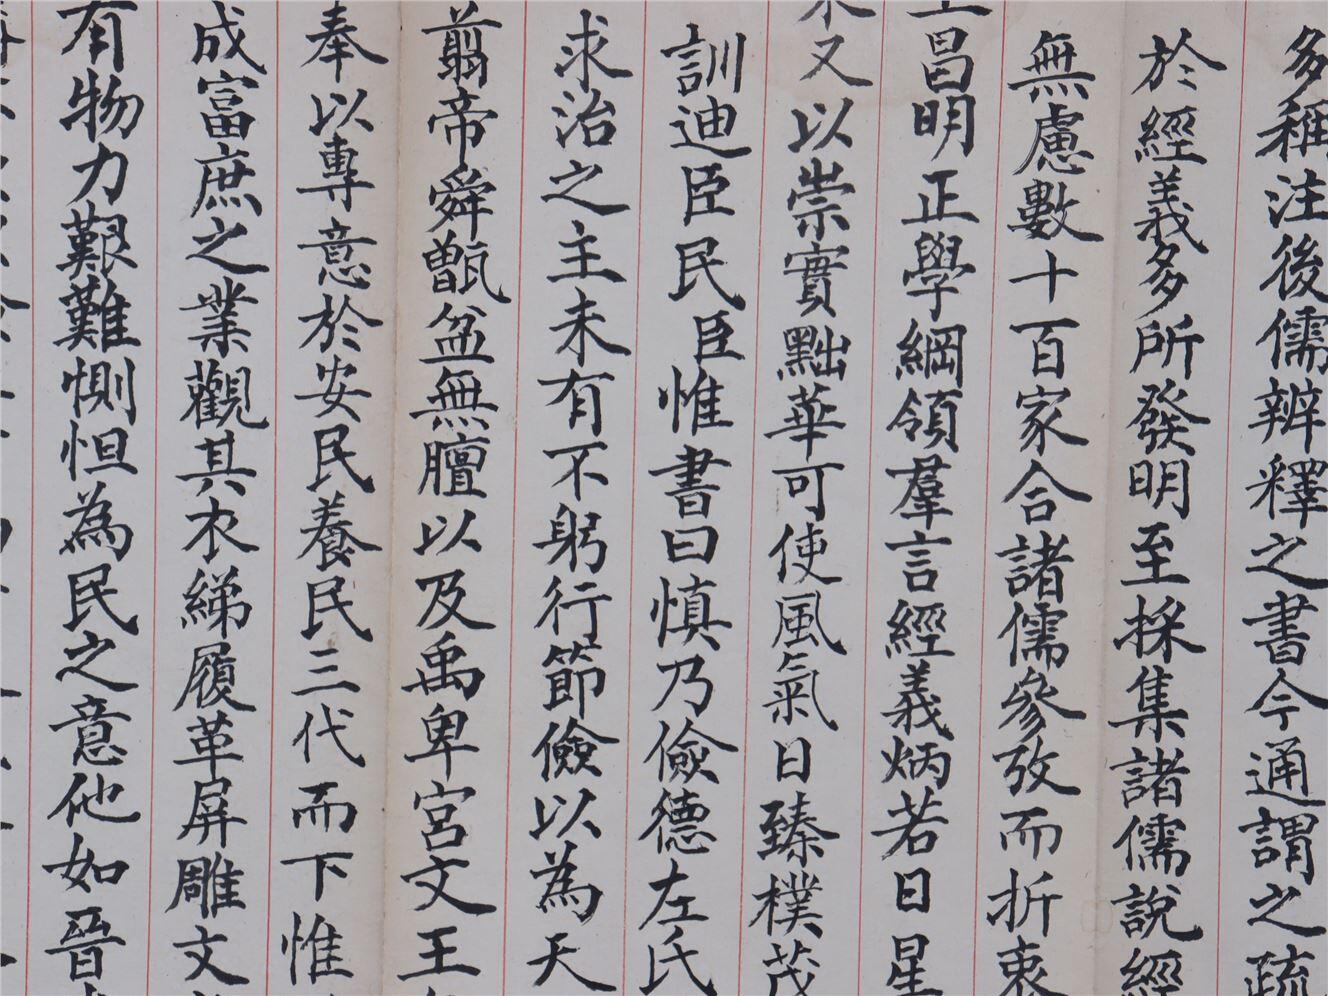 多稱注後儒辨釋之書今通謂之疏
於經義多所發明至採集諸儒說經
無慮數十百家合諸儒參攷而折衷
昌明正學綱領羣言經義炳若日星
又以崇實黜華可使風氣日臻樸茂
訓迪臣民臣惟書曰慎乃儉德左氏
求治之主未有不躬行節儉以為天
翦帝舜甑盆無膻以及禹卑宮文王
奉以專意於安民養民三代而下惟
成富庶之業觀其衣綈履革屏雕文
有物力艱難惻怛為民之意他如晉